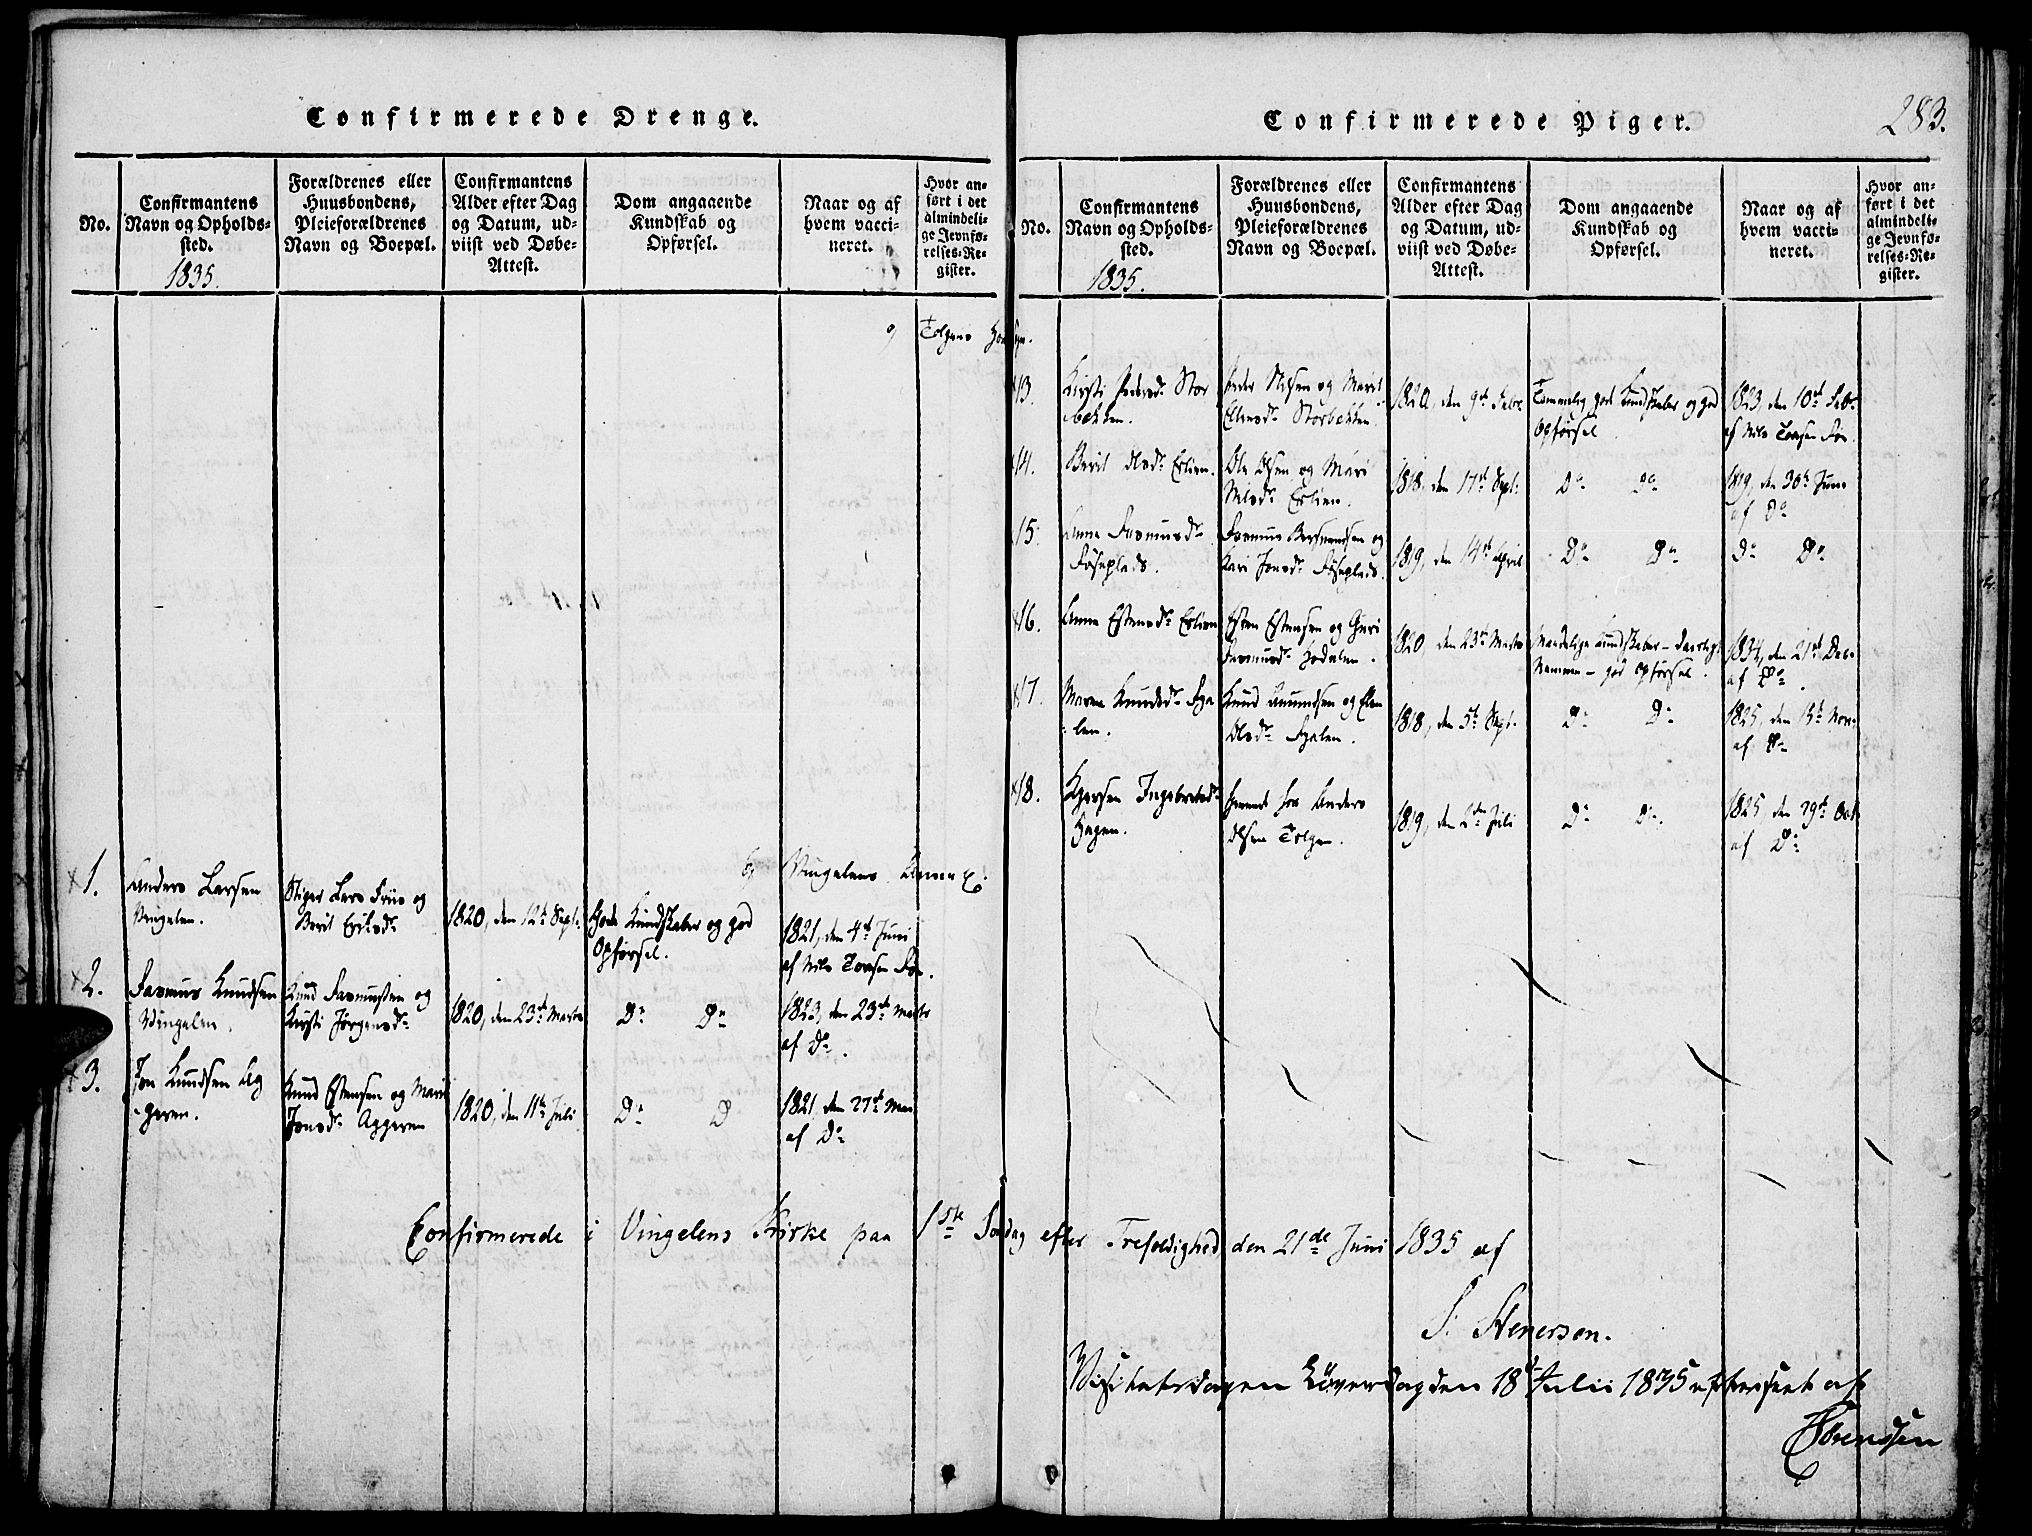 Confirmerede Drenge.
No.
Confirmantens
Navn og Opholds-
sted.
1835.
Forældrenes eller
Huusbondens,
Pleieforældrenes
Navn og Boepæl.
Confirmantens
Alder efter Dag
og Datum, ud-
viist ved Døbe-
Attest.
Dom angaaende
Kundskab og
Opførsel.
Naar og af
hvem vacci-
neret.
Hvor an-
ført i det
almindeli-
ge Jevnfø-
relses-Re-
gister.
Vingelens
1.
Anders Larsen
Vingelen.
Stiger Lars Friis og
Berit Eriksdr
1820, den 12te Sept.
Gode Kundskaber og god
Opførsel.
1821, den 4de Juni
af Nils ToasenFøs.
2.
Rasmus Knudsen
Vingelen.
Knud Rasmussen og
Kirsti Jørgensdr
1820, den 23de Marts
Do Do
1823, den 23de Marts
af Do.
3.
Jon Knudsen Ag
geren.
Knud Estensen og Mari
Jonsdr Aggeren
1820, den 11te Juli
Do D
1821, den 27de Mai
af Do
Confirmerede Piger.
283.
No.
Confirmantens
Navn og Opholds-
sted.
1835.
Forældrenes eller
Huusbondens,
Pleieforældrenes
Navn og Boepæl.
Confirmantens
Alder efter Dag
og Datum, ud-
viist ved Døbe-
Attest.
Dom angaaende
Kundskab og
Opførsel.
Naar og af
hvem vacci-
neret.
Hvor an-
ført i det
almindeli-
ge Jevnfø-
relses-Re-
gister.
Tolgens
13.
Kirsti Pedersdr Stor
bekken.
Peder Nilsen og Marit
Ellensdr Storbekken.
1820, den 9de Febr.
Temmelig gode Kundskaber og god
Opførsel.
1823, den 10de Febr.
af Nils Toasen Føs.
14.
Berit Olsdr Erlien.
Ole Olsen og Mari
Nilsdr Erlien.
1818, den 17de Sept.
Do Do
1819, den 30te Juni
af Do
15.
Anne Rasmusdr
Føseplads.
Rasmus Bersvendsen og
Kari Jonsdr Føseplads.
1819, den 14de April
Do Do
Do Do
16.
Anne Estensdr Erlien
Esten Estensen og Guri
Rasmusdr Hodalen.
1820, den 23de Marts
Maadelige Kundskaber – daarligt
Nemme – god Opførsel.
1834, den 21de Dec.
af Do.
17.
Maren Knudsdr Fga
len.
Knud Amundsen og Elen
Olsdr
1818, den 5te Sept.
Do Do
1825, den 13te Nov.
af Do
18.
Ingebretsdr
Hagen.
tjenende hos Anders
Olsen Tolgen.
1819, den 2den Juli
Do Do.
1825, den 29de Oct.
af Do
Confirmerede i Vingelens Kirke paa 1ste Søndag efter Trefoldighed den 21de Juni 1835 af
S. Stenersen.
Visitatsdagen Løverdag den 18de Julii 1835 efterseet af
Sørenssen